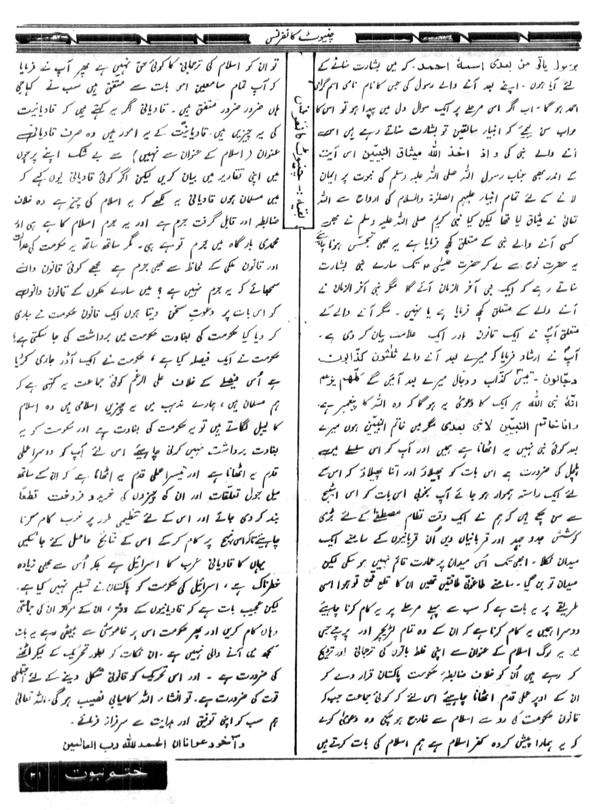 چنیوٹ کانفرنس
بقیہ :- چنیوٹ کانفرنس
برسول یأتی من بعدی اسمہٗ احمد۔ کہ میں بشارت سنانے کے
لئے آیا ہوں۔ اپنے بعد آنے والے رسول کی جس کا نام نامی اسم گرامی
احمد ہوگا۔ اب اگر اس مرحلے پر ایک سوال دل میں پیدا ہو تو اس کا
جواب سن لیجئے کہ انبیاء سابقین تو بشارت سناتے رہے ہیں اسے
آنے والے نبی کی و اذ اخذ اللہ میثاق النبیّین اس آیت
کے اندر بھی جناب رسول اللہ صلی اللہ علیہ وسلم کی نبوت پر ایمان
لانے کے لئے تمام انبیاء علیہم الصلوٰۃ والسلام کی ارواح سے اللہ
تعالیٰ نے میثاق لیا تھا لیکن کیا نبی کریم صلی اللہ علیہ وسلم نے بھی
کسی آنے والے نبی کے متعلق کچھ فرمایا ہے یہ بھی تجسس ہونا چاہیے
کہ حضرت نوح سے لے کر حضرت عیسیٰؑ تک سارے نبی بشارت
سناتے رہے کہ ایک نبی آخر الزمان آئے گا مگر نبی آخر الزمان نے
آنے والے کے متعلق کچھ فرمایا ہے یا نہیں۔ مگر آنے والے کے
متعلق آپؐ نے ایک قانون اور ایک علامت بیان کر دی ہے۔
آپؐ نے ارشاد فرمایا کہ میرے بعد آنے والے ثلٰثون کذابون
دجّالون۔ تیس کذاب و دجال میرے بعد آئیں گے کلّھم یزعم
انّہٗ نبی اللہ ہر ایک کا دعویٰ یہ ہوگا کہ وہ اللہ کا پیغمبر ہے۔
و انا خاتم النّبیّین لا نبی بعدی مگر میں خاتم النبیین ہوں میرے
بعد کوئی نبی نہیں یہ اٹھانا ہے ہمیں اور آپ کو اس سلسلے میں
پہل کی ضرورت ہے اس بات کو پھیلاؤ اور اتنا پھیلاؤ کہ اس کے
لئے ایک راستہ ہموار ہو جائے آپ بخوبی اس بات کو اس اسٹیج
سے سن چکے ہیں کہ ہم نے ایک وقت نظام مصطفےٰ کے لئے بڑی
کوشش جدوجہد اور قربانیاں دیں اُن قربانیوں کے سامنے
میدان نکلا۔ ابھی تک اس میدان پر عمارت قائم نہیں ہو سکی لیکن
میدان تو بن گیا۔ سامنے طاغوتی طاقتیں تھیں ان کا قلع قمع تو ہوا اسی
طریقے پر یہ بات ہے کہ سب سے پہلے مرحلے پر یہ کام کرنا چاہیئے
دوسرا ہمیں یہ کام کرنا ہے کہ ان کے وہ تمام لٹریچر اور پرچے جن
میں یہ لوگ اسلام کے عنوان سے اپنی غلط باتوں کی ترجمانی اور ترویج
کر رہے ہیں اُن کو خلاف ضابطۂ حکومت پاکستان قرار دے کر
ان کے اوپر عملی قدم اٹھانا چاہیئے اس لئے کہ کوئی جماعت جب کہ
قانون حکومت کی رو سے اسلام سے خارج ہو چکی وہ دعویٰ کرے
کہ یہ ہمارا پیش کردہ کفر اسلام ہے ہم اسلام کی بات کرتے ہیں
تو ان کو اسلام کی ترجمانی کا کوئی حق نہیں ہے پھر آپ نے فرمایا
کہ آپ تمام سامعین اس بات سے متفق ہیں سب نے کہا جی
ہاں ضرور ضرور متفق ہیں۔ قادیانی اگر یہ کہتے ہیں کہ قادیانیت
کی یہ چیزیں ہیں۔ قادیانیت کے یہ امور ہیں وہ صرف قادیانیت کے
عنوان (اسلام کے عنوان سے نہیں) سے بے شک اپنے پرچوں
میں اپنی تقاریر میں بیان کریں لیکن اگر کوئی قادیانی یوں کہے کہ
میں مسلمان ہوں قادیانی یہ لکھے کہ یہ اسلام کی چیز ہے وہ خلاف
ضابطہ اور قابل گرفت جرم ہے اور یہ جرم اسلام کا ہے ہی اور
محمدی بارگاہ میں جرم تو ہے ہی۔ مگر ساتھ ساتھ یہ حکومت کی عدالت
اور قانون ملکی کے لحاظ سے بھی جرم ہے مجھے کوئی قانون دان
سمجھائے کہ یہ جرم نہیں ہے؟ میں سارے ملکوں کے قانون دانوں
کو اس بات پر دعوتِ سخن دیتا ہوں ایک قانون حکومت نے جاری
کر دیا کیا حکومت کی بغاوت حکومت میں برداشت کی جا سکتی ہے؟
حکومت نے ایک فیصلہ کیا ہے، حکومت نے ایک آڈر جاری کر دیا
ہے اُس فیصلے کے خلاف علی الرغم کوئی جماعت یہ کہتی ہے کہ
ہم مسلمان ہیں، ہمارے مذہب میں یہ چیزیں اسلامی ہیں وہ اسلام
کا لیبل لگاتے ہیں تو یہ حکومت کی بغاوت ہے اور حکومت کو یہ
بغاوت برداشت نہیں کرنی چاہیئے اس لئے آپ کو دوسرا عملی
قدم یہ اٹھانا ہے اور تیسرا عملی قدم یہ اٹھانا ہے کہ ان کے ساتھ
میل جول تعلقات اور ان کی چیزوں کی خرید و فروخت قطعاً
بند کر دی جائے اور اس کے لئے تنظیمی طور پر خوب کام کرنا
چاہیئے تاکہ اس نہج پر کام کر کے اس کے نتائج حاصل کئے جا سکیں
یہاں کا قادیانی عرب کا اسرائیل ہے بلکہ اُس سے بھی زیادہ
خطرناک ہے، اسرائیل کی حکومت کو پاکستان نے تسلیم نہیں کیا ہے۔
لیکن عجیب بات ہے کہ قادیانیوں کے دفتر، ان کے مراکز ان کی جماعتیں
وہاں کام کریں اور پھر حکومت اس پر خاموشی سے بیٹھی رہے یہ بات
سمجھ میں آنے والی نہیں ہے۔ ان نکات کو بطور تحریک کے لیکر اٹھنے
کی ضرورت ہے۔ اور اس تحریک کو قانونی شکل دینے کے لئے عملی
قوت کی ضرورت ہے۔ تو انشاء اللہ کامیابی نصیب ہوگی۔ اللہ تعالیٰ
ہم سب کو اپنی توفیق اور ہدایت سے سرفراز فرمائے۔
و آخر دعوانا ان الحمد للہ رب العالمین
ختم نبوت
۳۱